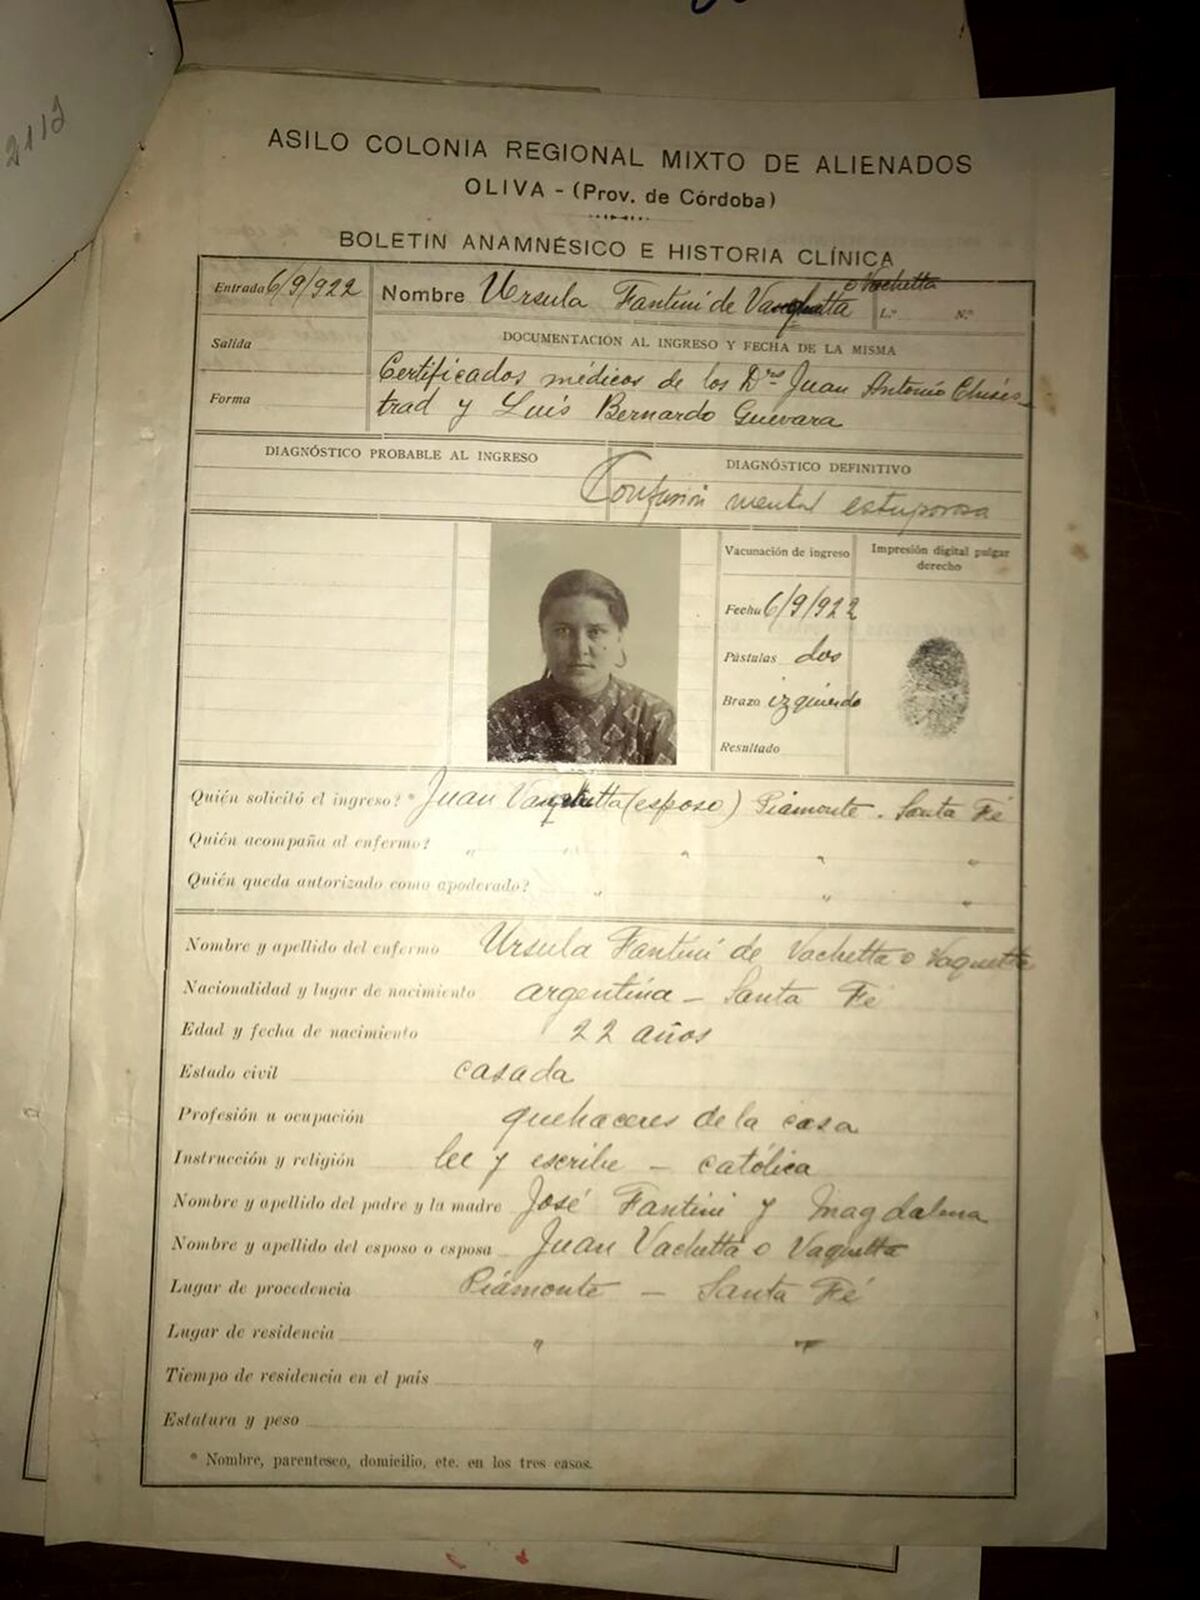 2112
ASILO COLONIA REGIONAL MIXTO DE ALIENADOS
OLIVA - (Prov. de Córdoba)
BOLETIN ANAMNÉSICO E HISTORIA CLÍNICA
Entrada 6/9/922 Nombre Ursula Fantini de Vaquetta o Vachetta L.º N.º
Salida
DOCUMENTACIÓN AL INGRESO Y FECHA DE LA MISMA
Certificados médicos de los Drs Juan Antonio Chrés-
Forma
trad y Luis Bernardo Guevara
DIAGNÓSTICO PROBABLE AL INGRESO
DIAGNÓSTICO DEFINITIVO
Confusión mental estuporosa
Vacunación de ingreso
Impresión digital pulgar derecho
Fecha 6/9/922
Pústulas dos
Brazo izquierdo
Resultado
Quién solicitó el ingreso? * Juan Vaquetta (esposo) Piamonte. Santa Fé
Quién acompaña al enfermo? " " " " "
Quién queda autorizado como apoderado? " " "
Nombre y apellido del enfermo Ursula Fantini de Vachetta o Vaquetta
Nacionalidad y lugar de nacimiento argentina - Santa Fé
Edad y fecha de nacimiento 22 años
Estado civil casada
Profesión u ocupación quehaceres de la casa
Instrucción y religión lee y escribe - católica
Nombre y apellido del padre y la madre José Fantini y Magdalena
Nombre y apellido del esposo o esposa Juan Vachetta o Vaquetta
Lugar de procedencia Piamonte - Santa Fé
Lugar de residencia " "
Tiempo de residencia en el país
Estatura y peso
* Nombre, parentesco, domicilio, etc. en los tres casos.